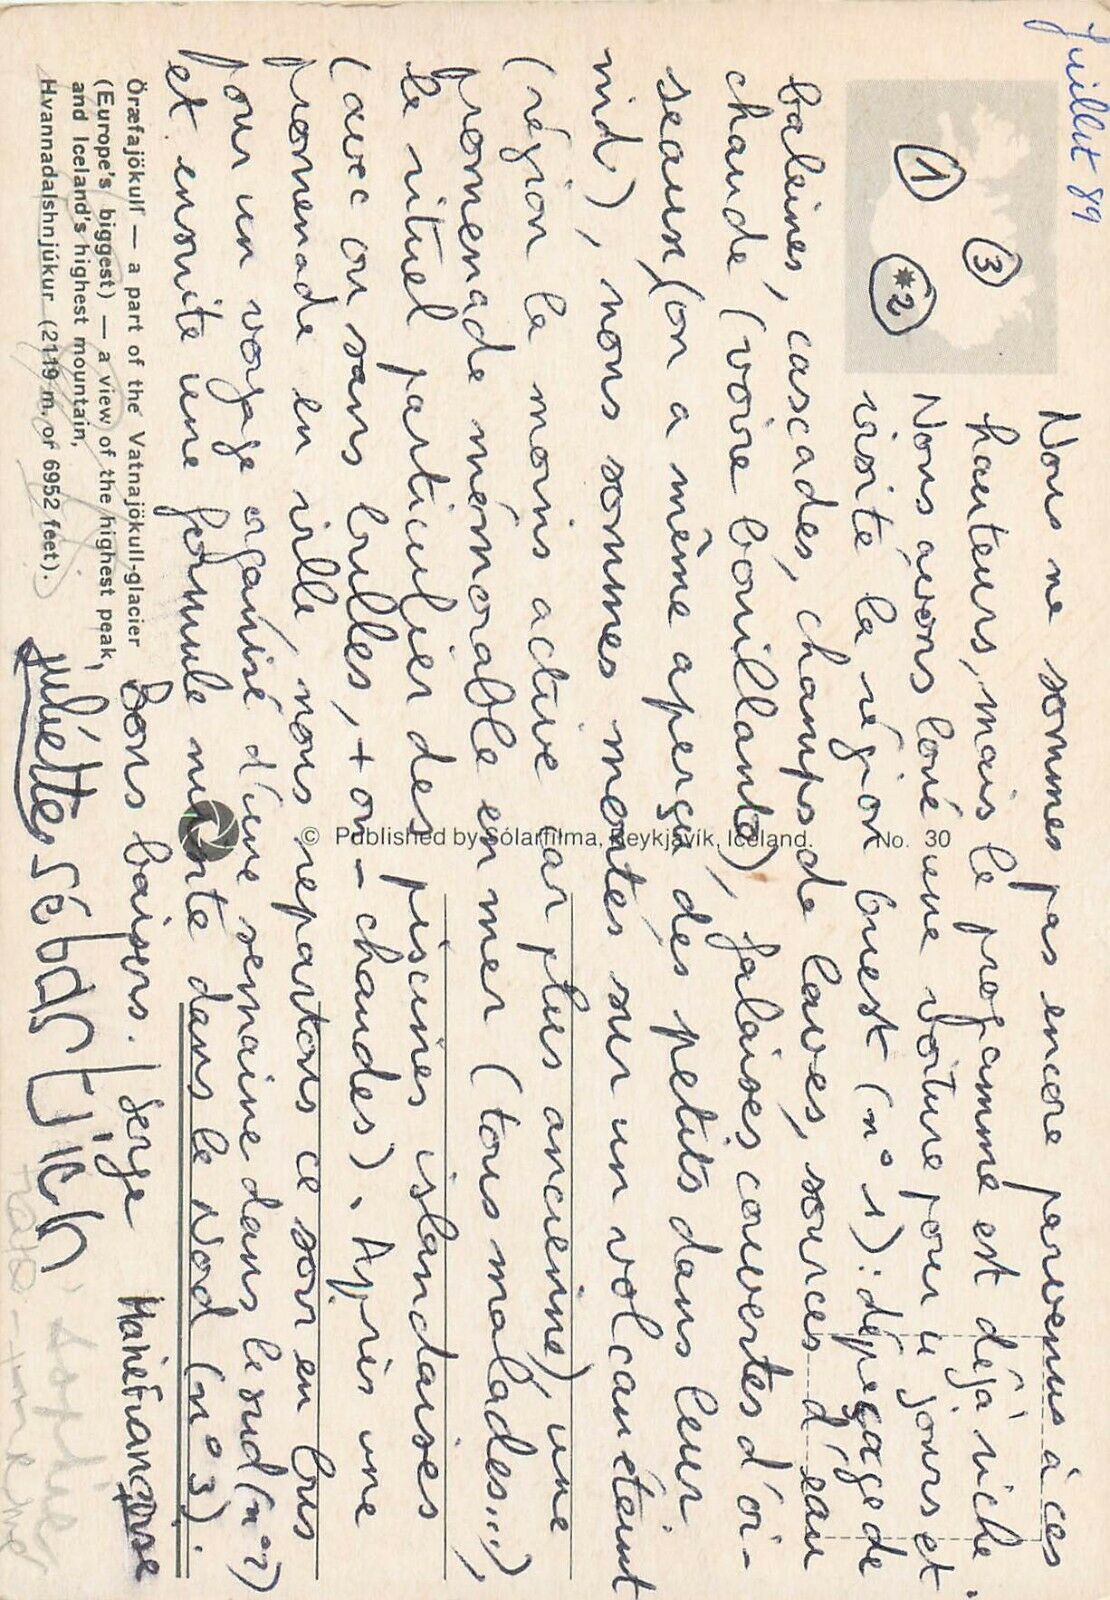 Juillet 89
1
3
*2
Nous ne sommes pas encore parvenus à ces
hauteurs, mais le programme est déjà riche.
Nous avons loué une voiture pour 4 jours et
visité la région Ouest (n° 1) : dépeçage de
baleines, cascades, champs de laves, sources d'eau
chaude (voire bouillante), falaises couvertes d'oi-
seaux (on a même aperçu des petits dans leur
nid), nous sommes montés sur un volcan éteint
(région la moins active car plus ancienne), une
promenade mémorable en mer (tous malades...),
le rituel particulier des piscines islandaises
(avec ou sans bulles, + ou - chaudes). Après une
promenade en ville, nous repartons ce soir en bus
pour un voyage organisé d'une semaine dans le sud (n°2)
et ensuite une formule mixte dans le Nod (n° 3).
Bons baisers. Serge MarieFrançoise
juliette sébastien
Öræfajökull — a part of the Vatnajökull-glacier
(Europe's biggest) — a view of the highest peak,
and Iceland's highest mountain,
Hvannadalshnjúkur (2119 m. or 6952 feet).
© Published by Sólarfilma, Reykjavík, Iceland. No. 30